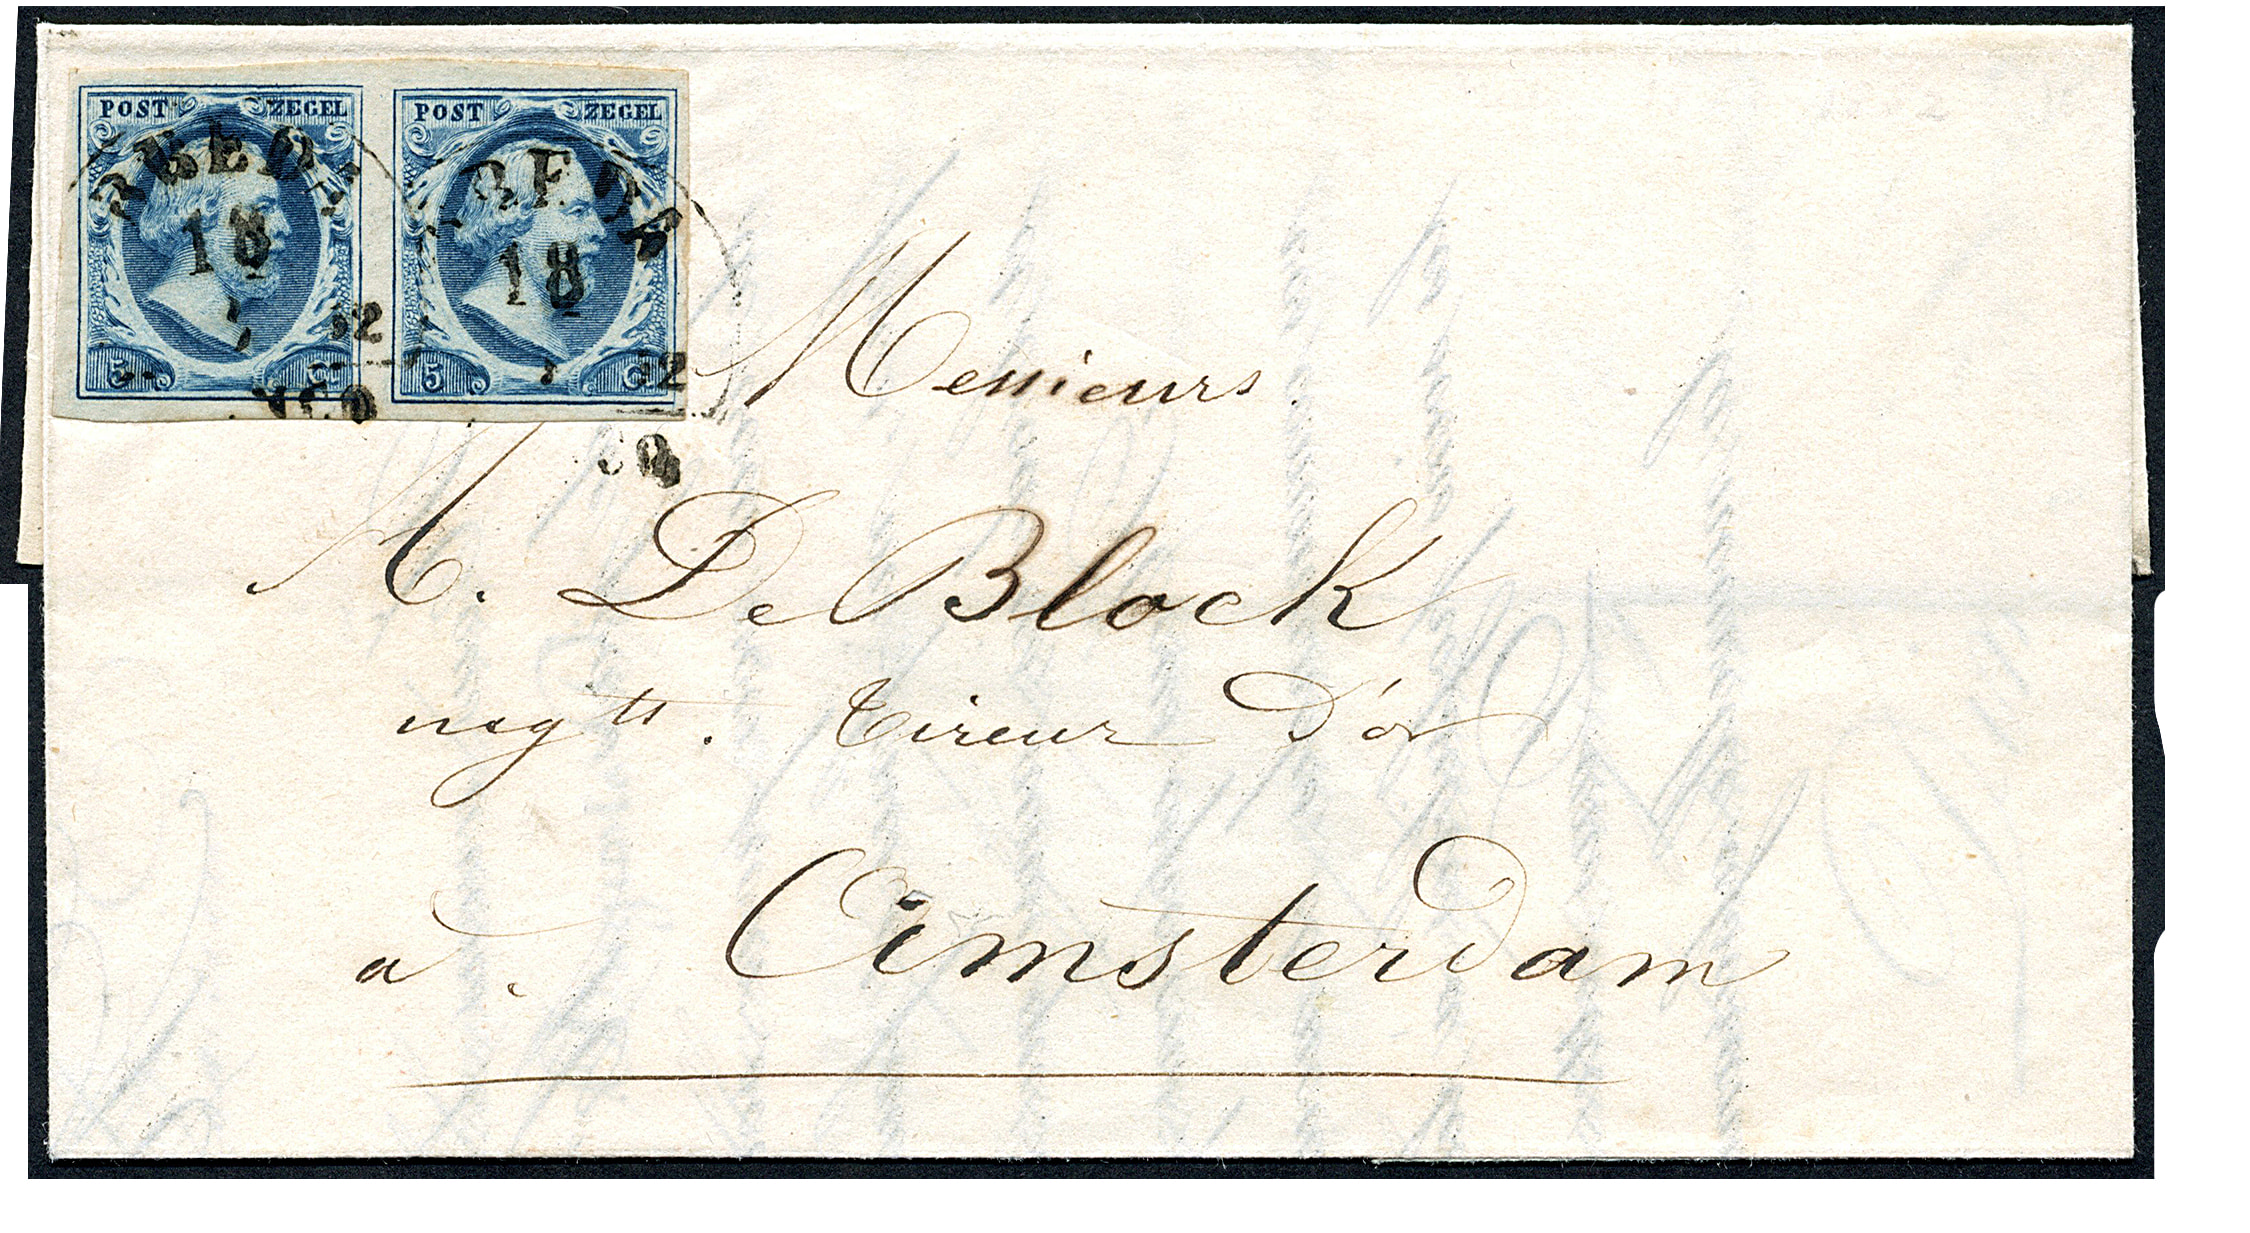 POST ZEGEL POST ZEGEL
BREDA
18
52
18
5 C 5 C
Messieurs
A. De Block
negts. Tireur D'or
a. Amsterdam